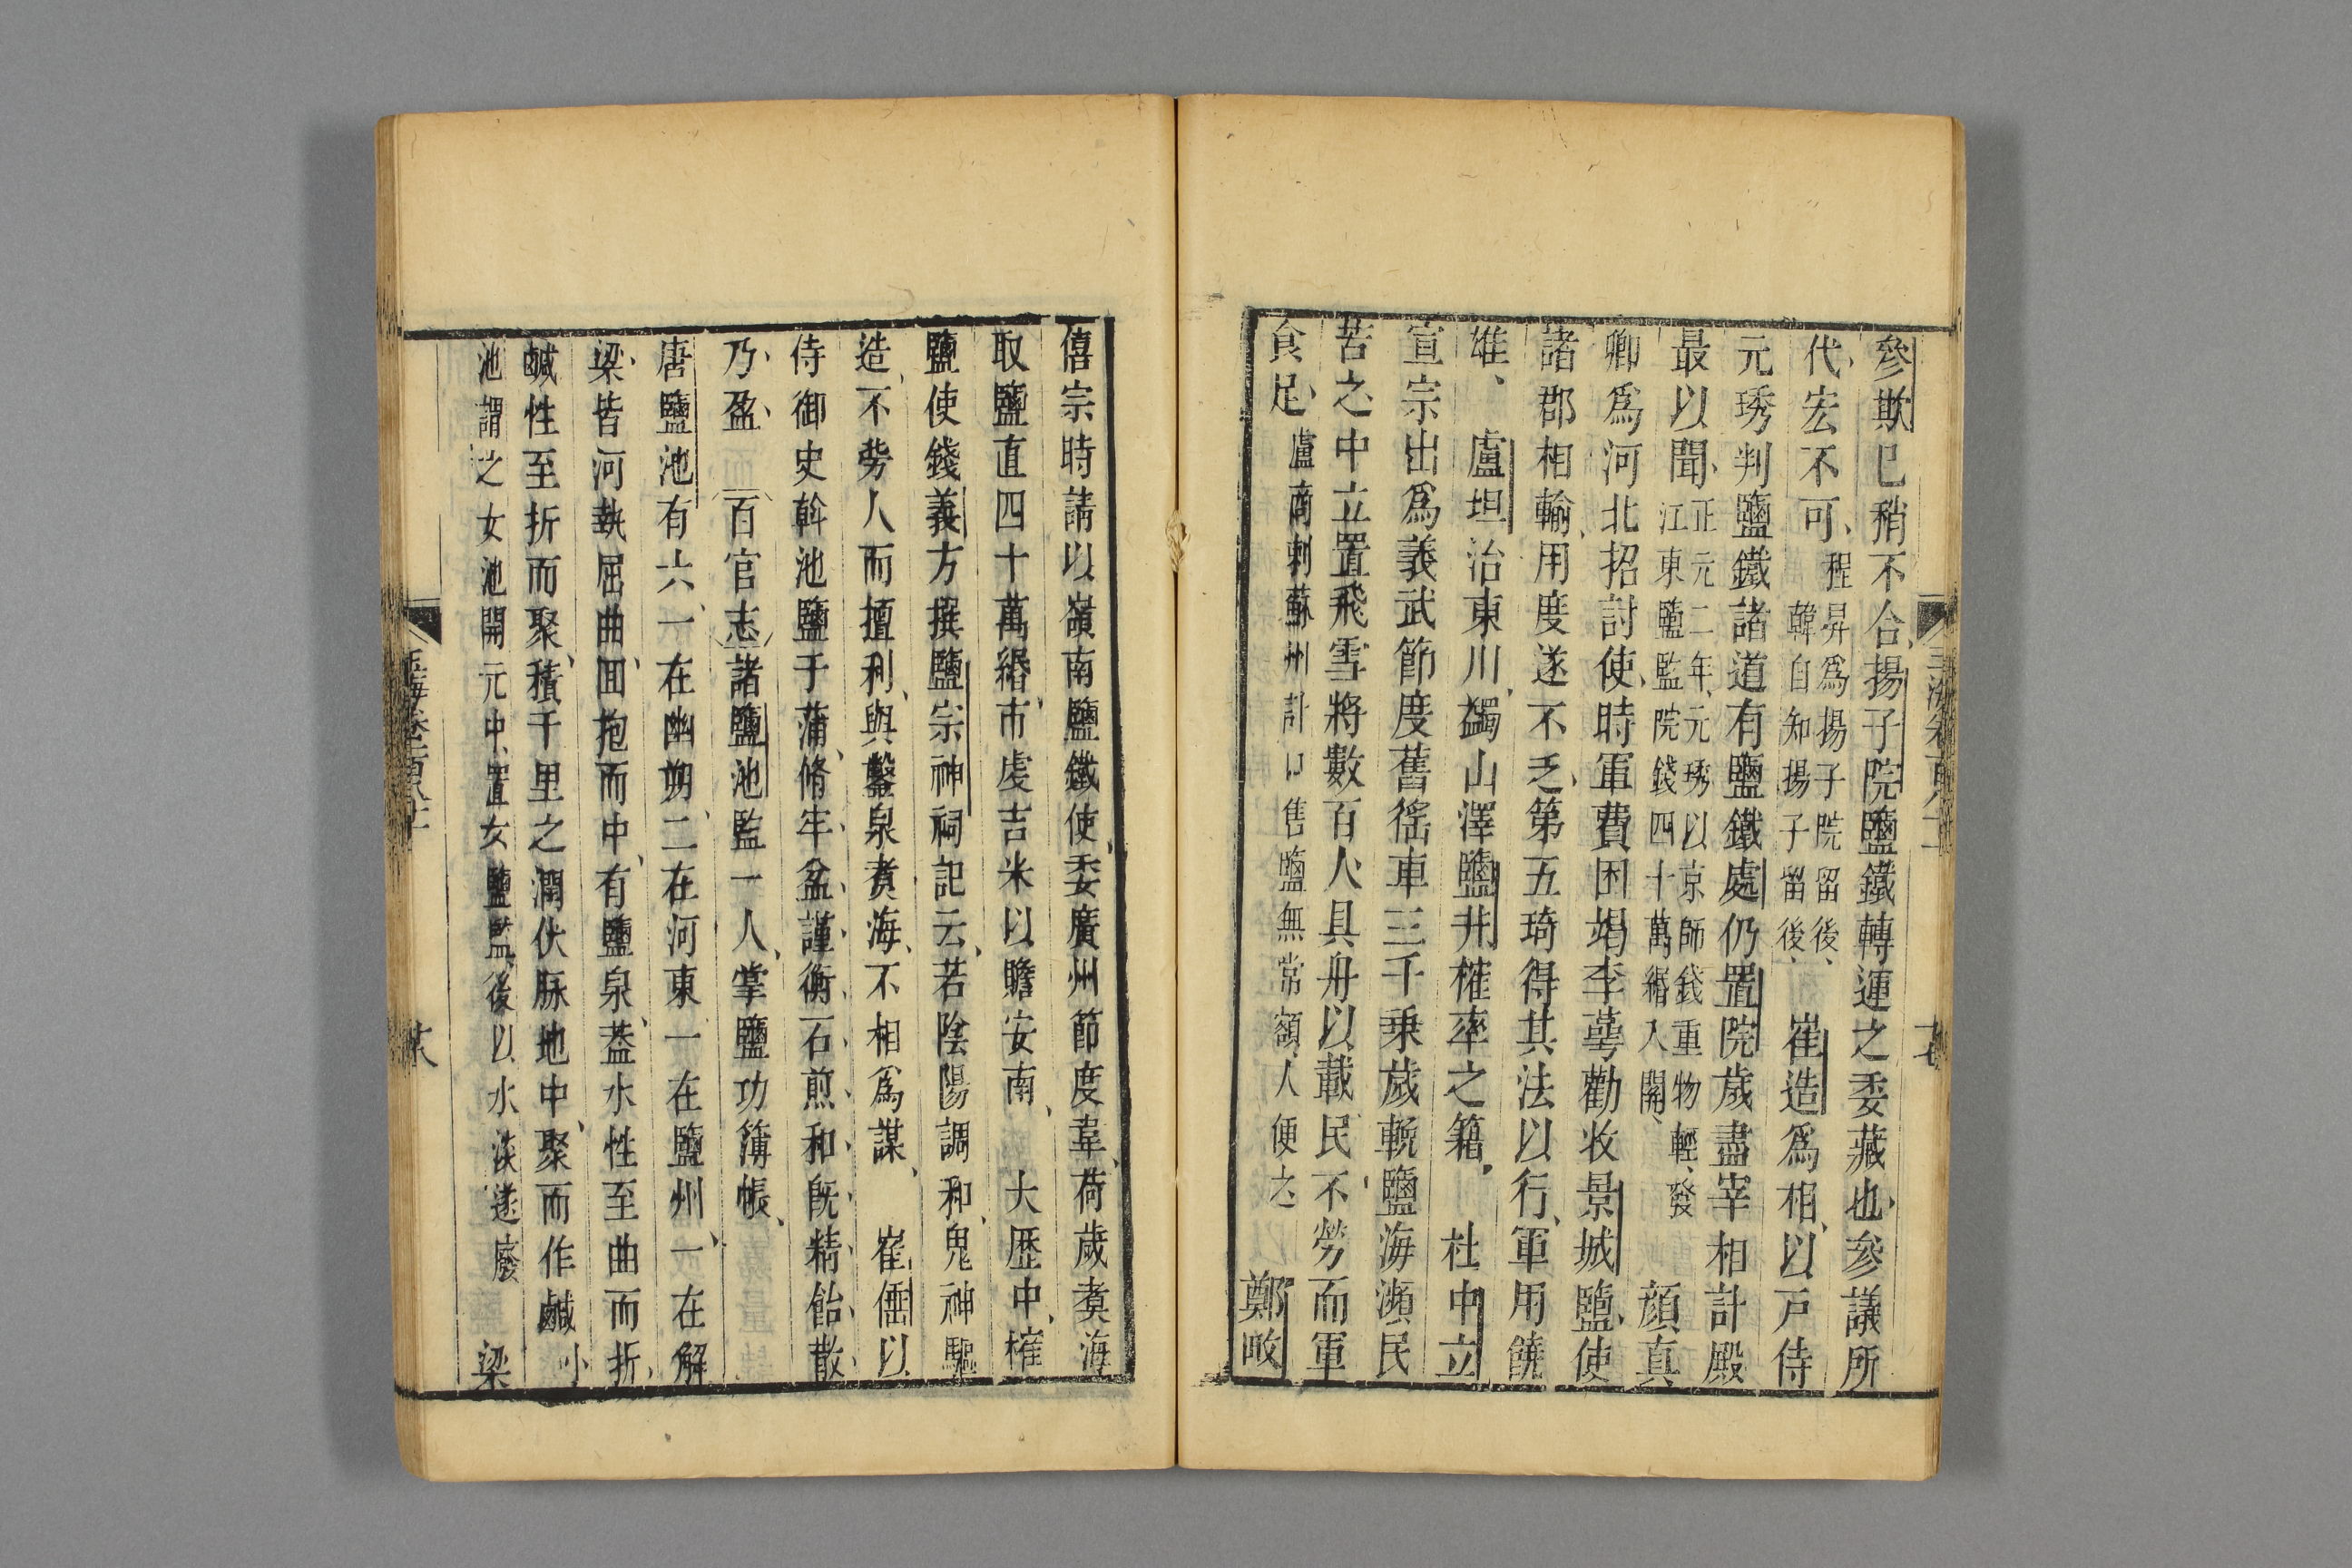 參欺已稍不合揚子院鹽鐵轉運之委藏也參議所
代宏不可程昇爲揚子院留後韓自知揚子留後崔造爲相以戸侍
元琇判鹽鐵諸道有鹽鐵處仍置院歲盡宰相計殿
最以聞正元二年元琇以京師錢重物輕發江東鹽監院錢四十萬緡入關顔真
卿爲河北招討使時軍費困竭李蕚勸收景城鹽使
諸郡相輸用度遂不乏第五琦得其法以行軍用饒
雄盧坦治東川蠲山澤鹽井榷率之籍杜中立
宣宗出爲義武節度舊徭車三千乗歲輓鹽海瀕民
苦之中立置飛雪將數百人具舟以載民不勞而軍
食足盧商刺蘇州計口售鹽無常額人便之鄭畋
僖宗時請以嶺南鹽鐵使委廣州節度韋荷歲煑海
取鹽直四十萬緡市虔吉米以贍安南大歷中榷
鹽使錢義方撰鹽宗神祠記云若陰陽調和鬼神驅
造不勞人而擅利與鑿泉煑海不相爲謀崔㑺以
侍御史斡池鹽于蒲脩牢盆謹衡石煎和旣精飴散
乃盈百官志諸鹽池監一人掌鹽功簿帳
唐鹽池有六一在幽朔二在河東一在鹽州一在解
梁皆河埶屈曲囬抱而中有鹽泉葢水性至曲而折
鹹性至折而聚積千里之潤伏脉地中聚而作鹹小
池謂之女池開元中置女鹽監後以水淡遂廢梁